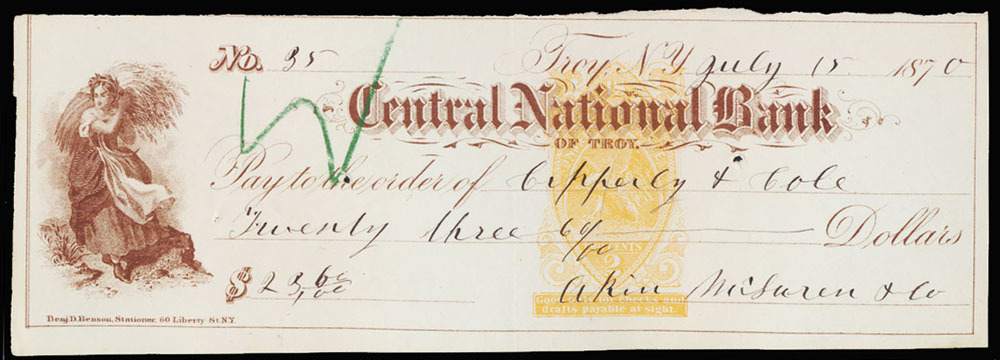 No. 35 Troy, N.Y. July 15 1870
Central National Bank
OF TROY.
Pay to the order of & Cole
Twenty three 60/100 Dollars
$ 23,60/100
Akin & Co
Good only for checks and
drafts payable at sight.
Benj. D. Benson, Stationer, 60 Liberty St. N.Y.